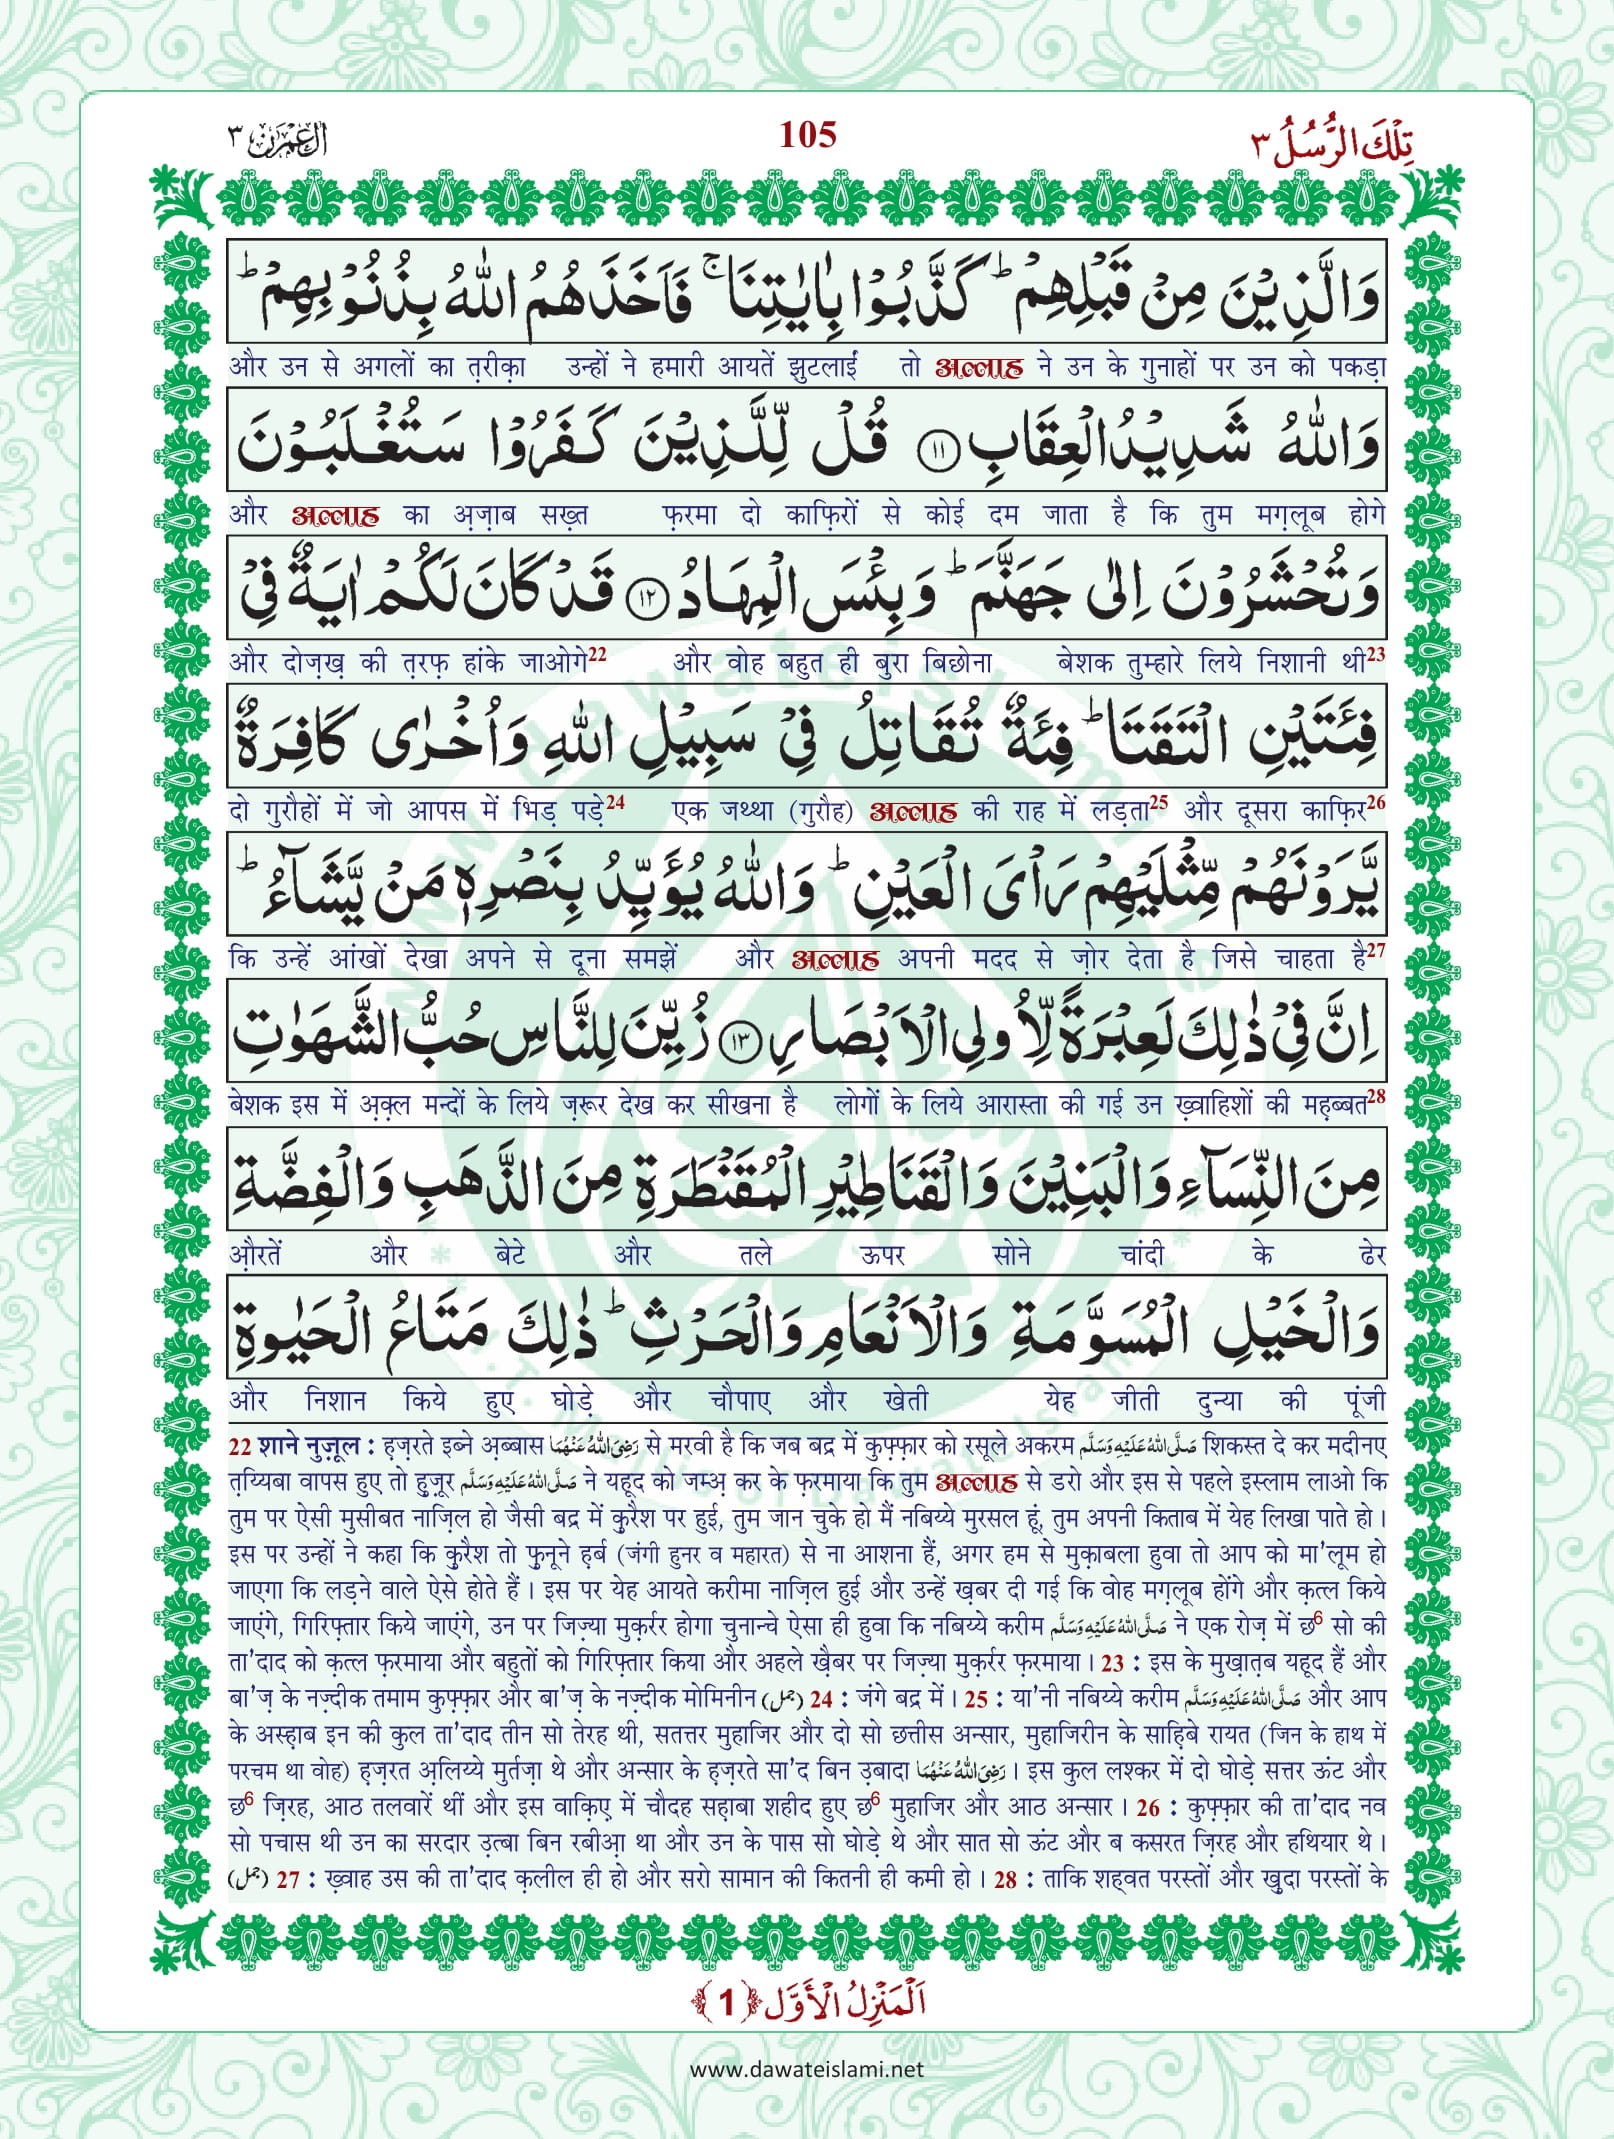 تِلْكَ الرُّسُلُ ٣
105
اٰلِ عِمْرٰن ٣
وَالَّذِيْنَ مِنْ قَبْلِهِمْ ؕ كَذَّبُوْا بِاٰيٰتِنَا ۚ فَاَخَذَهُمُ اللّٰهُ بِذُنُوْبِهِمْ ؕ
और उन से अगलों का त़रीक़ा उन्हों ने हमारी आयतें झुटलाईं तो अल्लाह ने उन के गुनाहों पर उन को पकड़ा
وَاللّٰهُ شَدِيْدُ الْعِقَابِ ﴿١١﴾ قُلْ لِّلَّذِيْنَ كَفَرُوْا سَتُغْلَبُوْنَ
और अल्लाह का अ़ज़ाब सख़्त फ़रमा दो काफ़िरों से कोई दम जाता है कि तुम मग़्लूब होगे
وَتُحْشَرُوْنَ اِلٰى جَهَنَّمَ ؕ وَبِئْسَ الْمِهَادُ ﴿١٢﴾ قَدْ كَانَ لَكُمْ اٰيَةٌ فِيْ
और दोज़ख़ की त़रफ़ हांके जाओगे22 और वोह बहुत ही बुरा बिछोना बेशक तुम्हारे लिये निशानी थी23
فِئَتَيْنِ الْتَقَتَا ؕ فِئَةٌ تُقَاتِلُ فِيْ سَبِيْلِ اللّٰهِ وَاُخْرٰى كَافِرَةٌ
दो गुरौहों में जो आपस में भिड़ पड़े24 एक जथ्था (गुरौह) अल्लाह की राह में लड़ता25 और दूसरा काफ़िर26
يَّرَوْنَهُمْ مِّثْلَيْهِمْ رَاْىَ الْعَيْنِ ؕ وَاللّٰهُ يُؤَيِّدُ بِنَصْرِهٖ مَنْ يَّشَآءُ ؕ
कि उन्हें आंखों देखा अपने से दूना समझें और अल्लाह अपनी मदद से ज़ोर देता है जिसे चाहता है27
اِنَّ فِيْ ذٰلِكَ لَعِبْرَةً لِّاُولِي الْاَبْصَارِ ﴿١٣﴾ زُيِّنَ لِلنَّاسِ حُبُّ الشَّهَوٰتِ
बेशक इस में अ़क़्ल मन्दों के लिये ज़रूर देख कर सीखना है लोगों के लिये आरास्ता की गई उन ख़्वाहिशों की मह़ब्बत28
مِنَ النِّسَآءِ وَالْبَنِيْنَ وَالْقَنَاطِيْرِ الْمُقَنْطَرَةِ مِنَ الذَّهَبِ وَالْفِضَّةِ
औ़रतें और बेटे और तले ऊपर सोने चांदी के ढेर
وَالْخَيْلِ الْمُسَوَّمَةِ وَالْاَنْعَامِ وَالْحَرْثِ ؕ ذٰلِكَ مَتَاعُ الْحَيٰوةِ
और निशान किये हुए घोड़े और चौपाए और खेती येह जीती दुन्या की पूंजी
22 शाने नुज़ूल : ह़ज़रते इब्ने अ़ब्बास رَضِیَ اللّٰهُ عَنْهُمَا से मरवी है कि जब बद्र में कुफ़्फ़ार को रसूले अकरम صَلَّى اللّٰهُ عَلَيْهِ وَسَلَّم शिकस्त दे कर मदीनए
त़य्यिबा वापस हुए तो हुज़ूर صَلَّى اللّٰهُ عَلَيْهِ وَسَلَّم ने यहूद को जम्अ़ कर के फ़रमाया कि तुम अल्लाह से डरो और इस से पहले इस्लाम लाओ कि
तुम पर ऐसी मुसीबत नाज़िल हो जैसी बद्र में कुरैश पर हुई, तुम जान चुके हो मैं नबिय्ये मुरसल हूं, तुम अपनी किताब में येह लिखा पाते हो।
इस पर उन्हों ने कहा कि कुरैश तो फुनूने ह़र्ब (जंगी हुनर व महारत) से ना आशना हैं, अगर हम से मुक़ाबला हुवा तो आप को मा'लूम हो
जाएगा कि लड़ने वाले ऐसे होते हैं। इस पर येह आयते करीमा नाज़िल हुई और उन्हें ख़बर दी गई कि वोह मग़्लूब होंगे और क़त्ल किये
जाएंगे, गिरिफ़्तार किये जाएंगे, उन पर जिज़्या मुक़र्रर होगा चुनान्चे ऐसा ही हुवा कि नबिय्ये करीम صَلَّى اللّٰهُ عَلَيْهِ وَسَلَّم ने एक रोज़ में छ6 सो की
ता'दाद को क़त्ल फ़रमाया और बहुतों को गिरिफ़्तार किया और अहले ख़ैबर पर जिज़्या मुक़र्रर फ़रमाया। 23 : इस के मुख़ात़ब यहूद हैं और
बा'ज़ के नज़्दीक तमाम कुफ़्फ़ार और बा'ज़ के नज़्दीक मोमिनीन (جمل) 24 : जंगे बद्र में। 25 : या'नी नबिय्ये करीम صَلَّى اللّٰهُ عَلَيْهِ وَسَلَّم और आप
के अस्ह़ाब इन की कुल ता'दाद तीन सो तेरह थी, सतत्तर मुहाजिर और दो सो छत्तीस अन्सार, मुहाजिरीन के साहिबे रायत (जिन के हाथ में
परचम था वोह) ह़ज़रत अ़लिय्ये मुर्तज़ा थे और अन्सार के ह़ज़रते सा'द बिन उ़बादा رَضِیَ اللّٰهُ عَنْهُمَا। इस कुल लश्कर में दो घोड़े सत्तर ऊंट और
छ6 ज़िरह, आठ तलवारें थीं और इस वाक़िए में चौदह सह़ाबा शहीद हुए छ6 मुहाजिर और आठ अन्सार। 26 : कुफ़्फ़ार की ता'दाद नव
सो पचास थी उन का सरदार उ़त्बा बिन रबीआ़ था और उन के पास सो घोड़े थे और सात सो ऊंट और ब कसरत ज़िरह और हथियार थे।
(جمل) 27 : ख़्वाह उस की ता'दाद क़लील ही हो और सरो सामान की कितनी ही कमी हो। 28 : ताकि शह्वत परस्तों और खुदा परस्तों के
اَلْمَنْزِلُ الْاَوَّل ﴿1﴾
www.dawateislami.net